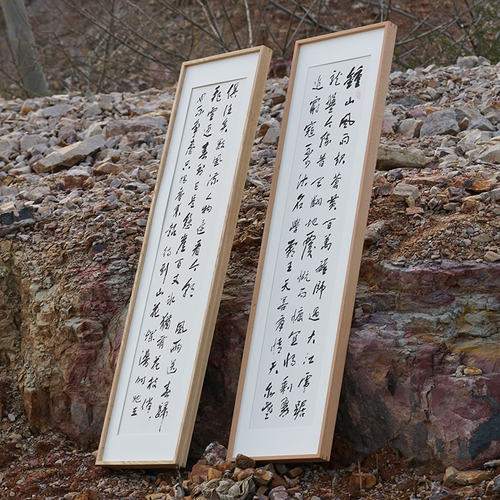 鍾山風雨起蒼黄百萬雄師過大江虎踞
龍盤今勝昔天翻地覆慨而慷宜將剩勇
追窮寇不可沽名學霸王天若有情天亦老
俱往矣數風流人物還看今朝 風雨送春歸
飛雪迎春到已是懸崖百丈冰猶有花枝俏
不爭春只把春來報待到山花爛漫時她在